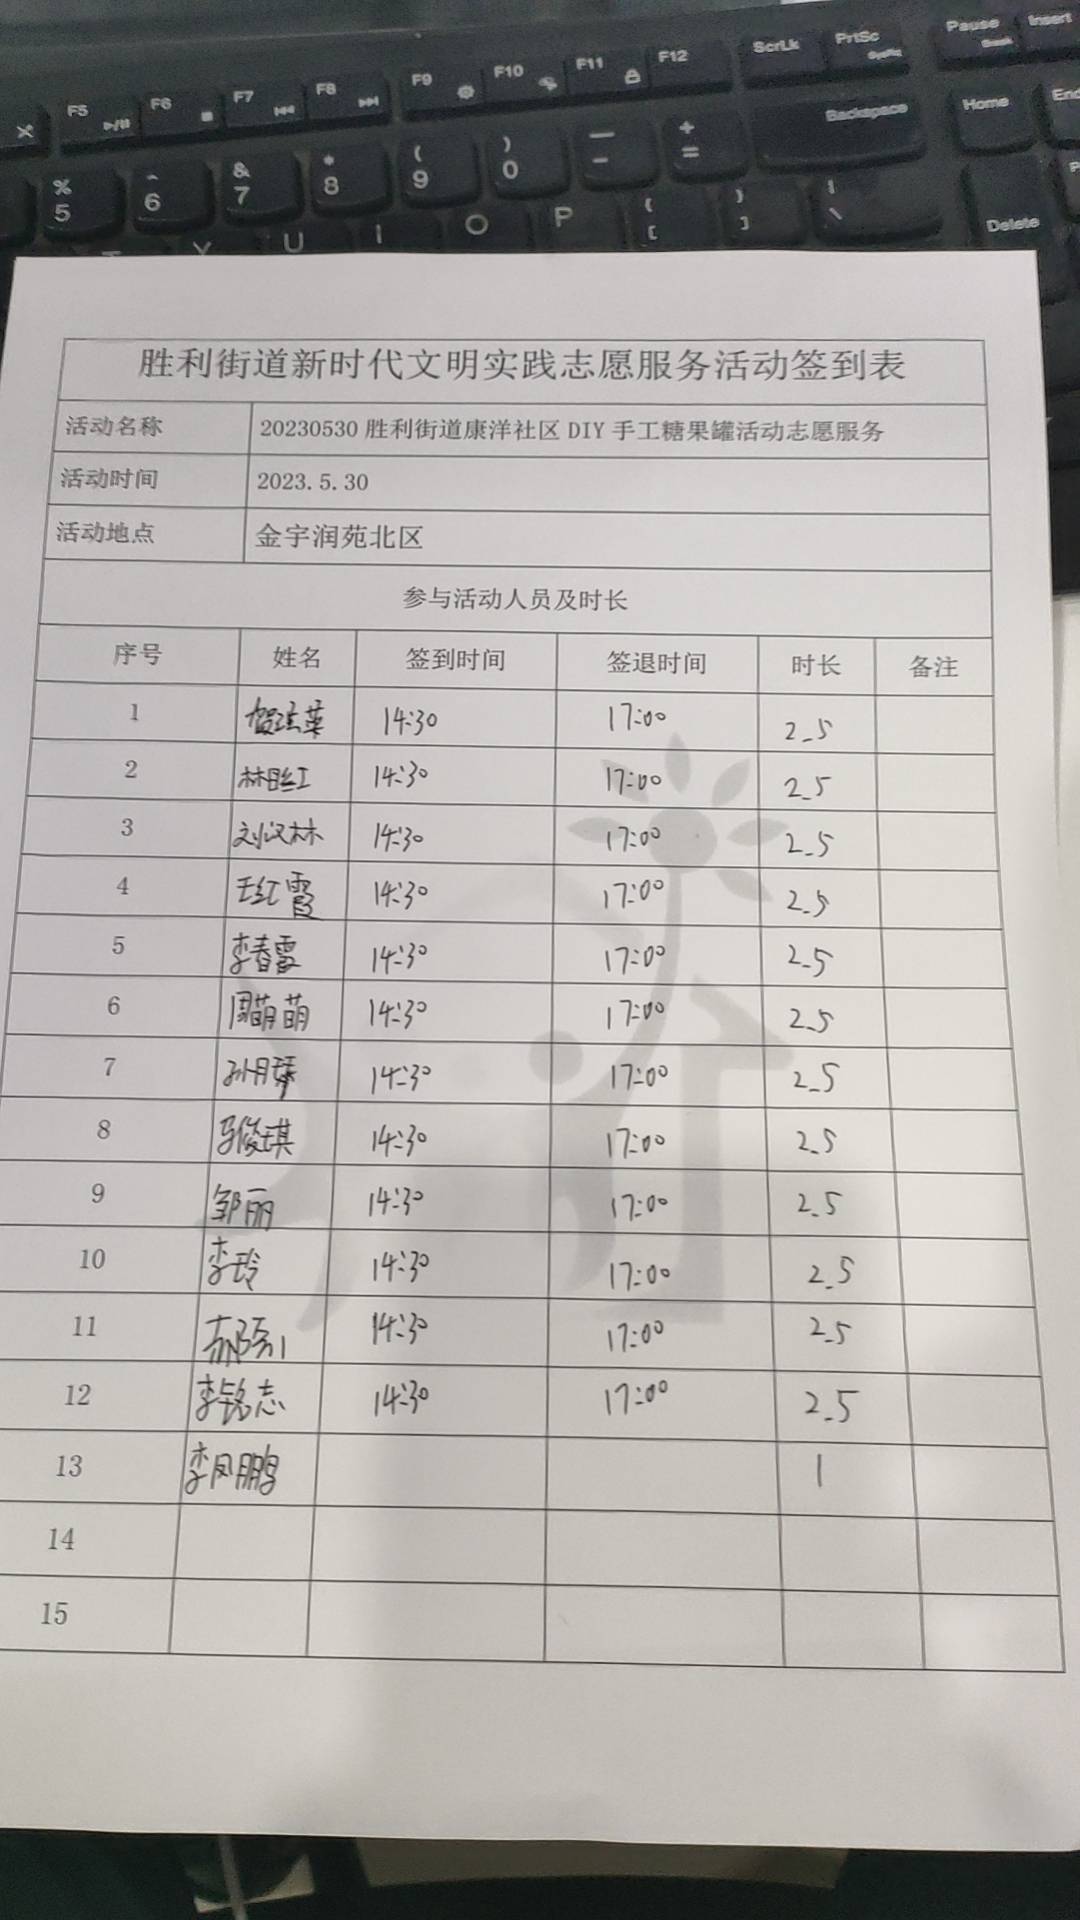 F5 F6 F7 F8 F9 F10 F11 F12 ScrLk PrtSc SysRq Pause Break Insert
% 5 ^ 6 & 7 * 8 ( 9 ) 0 — - + = Backspace Home End
Y U I O P [ ] \ Delete
胜利街道新时代文明实践志愿服务活动签到表
活动名称 20230530 胜利街道康洋社区 DIY 手工糖果罐活动志愿服务
活动时间 2023.5.30
活动地点 金宇润苑北区
参与活动人员及时长
序号 姓名 签到时间 签退时间 时长 备注
1 14:30 17:00 2.5
2 14:30 17:00 2.5
3 刘汉林 14:30 17:00 2.5
4 王红霞 14:30 17:00 2.5
5 李春霞 14:30 17:00 2.5
6 周萌萌 14:30 17:00 2.5
7 14:30 17:00 2.5
8 马俊琪 14:30 17:00 2.5
9 邹丽 14:30 17:00 2.5
10 李玲 14:30 17:00 2.5
11 14:30 17:00 2.5
12 李铭志 14:30 17:00 2.5
13 李凤鹏 1
14
15